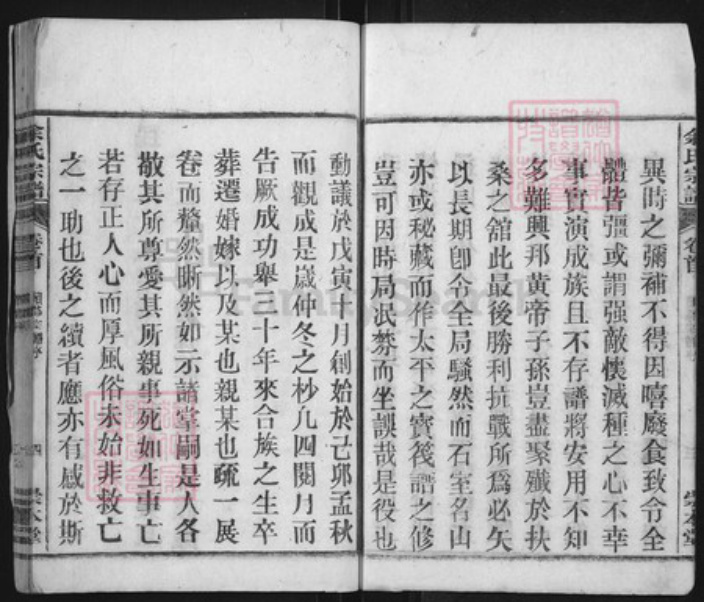 異時之彌補不得因噎廢食致令全
體皆彊或謂强敵懷滅種之心不幸
事實演成族且不存譜將安用不知
多難興邦黃帝子孫豈盡聚殲於扶
桑之舘此最後勝利抗戰所爲必矢
以長期卽令全局騷然而石室名山
亦或秘藏而作太平之寶筏譜之修
豈可因時局泯棼而坐誤哉是役也
動議於戊寅十月創始於己卯孟秋
而觀成是歲仲冬之杪凡四閱月而
告厥成功舉八十年來合族之生卒
葬遷婚嫁以及某也親某也疏一展
卷而釐然晰然如示諸掌嗣是人各
敬其所尊愛其所親事死如生事亡
若存正人心而厚風俗未始非救亡
之一助也後之續者應亦有感於斯
余氏宗譜
卷首
四
崇本堂